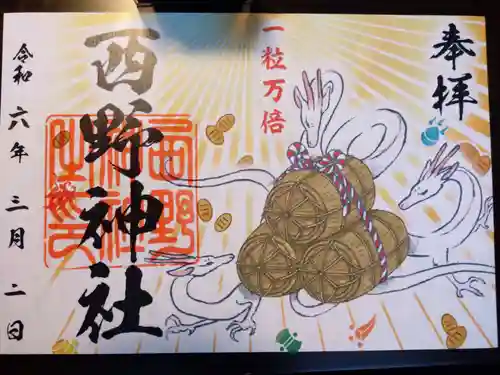 奉拝
一粒万倍
西野神社
令和六年三月二日